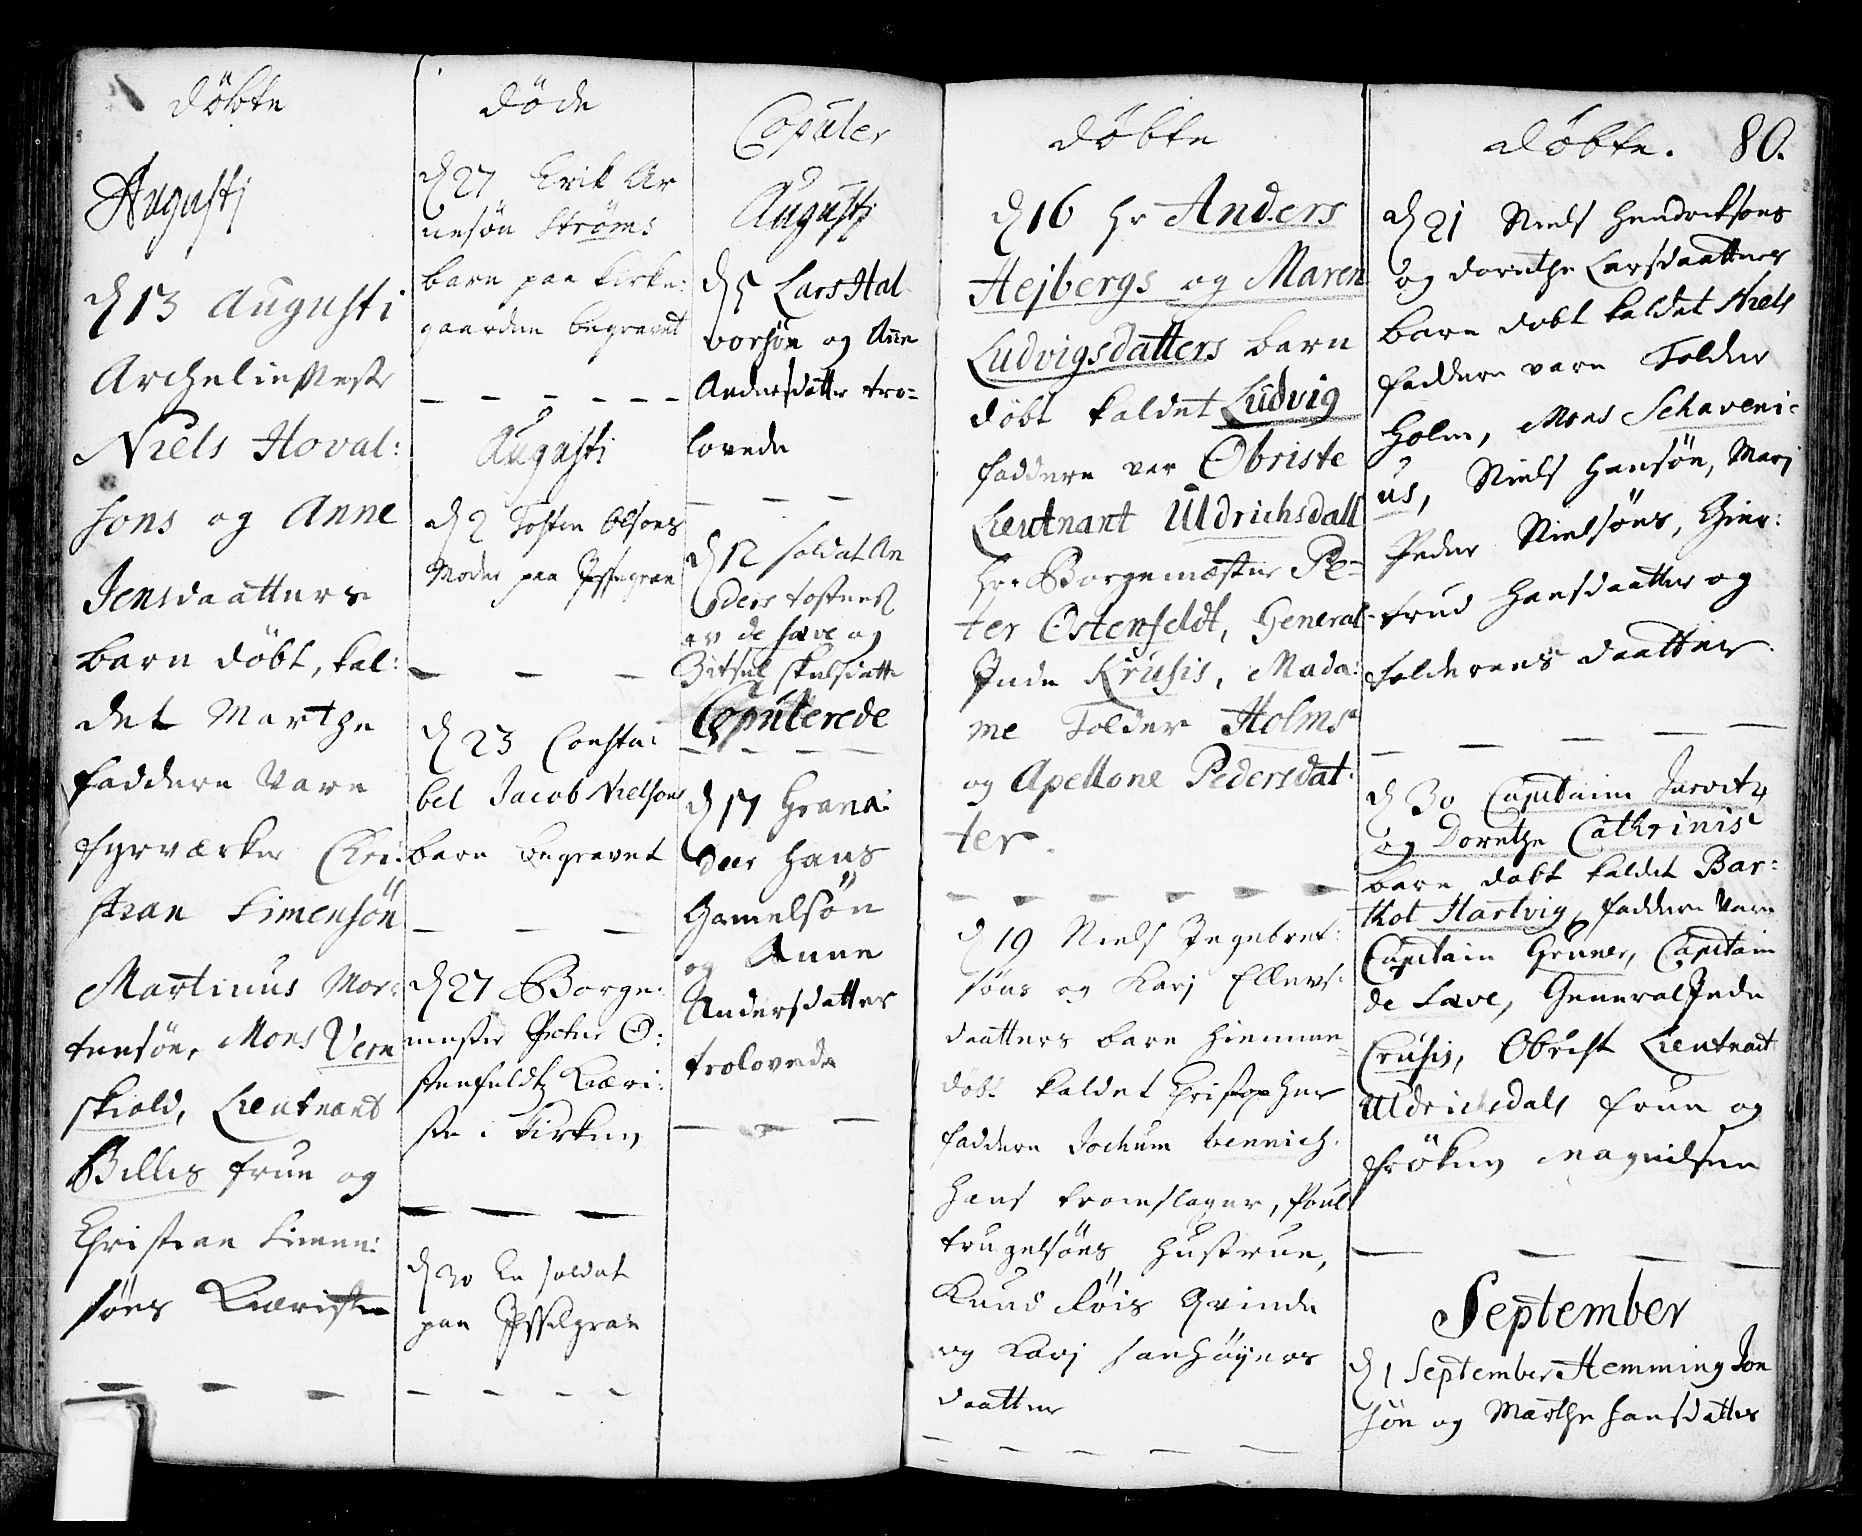 döbte
Augustj
d 13 Augusti
Archelimest
Niels Hoval:
sons og Anne
Jensdaatters
barn döbt, kal:
det Marthe
faddere vare
fyrværker Chri:
stian Simensön
Martinus Mor:
tensön, Mons Vern
skiold, Lieutnant
Billes frue og
Christian Simen:
söns Kieriste
döde
d 27 Erik Ar
nesön Ströms
barn paa Kirke:
gaarden begravet
Augusti
d 2 Tosten Olsöns
Moder paa Ysselgran
d 23 Consta:
bel Jacob Nielsöns
barn begravet
d 27 Borge:
mester Peter O:
stenfeldtz Kieri:
ste i Kirken
d 30 En soldat
paa Ysselgran
Copuler
Augustj
d 5 Lars Hal
vorsön og Anne
Andersdatter tro=
lovede
d 12 soldat An
ders tostens
av de save og
Zitsel skielsdatte
Copulerede
d 17 Grana:
deer Hans
Gamelsön
og Anne
Andersdatter
trolovede
döbte
d 16 hr Anders
Hejbergs og Maren
Ludvigsdatters barn
döbt kaldet Ludvig
faddere var Obriste
Lieutnant Uldrichsdall
Hr: Borgemæster Pe=
ter Ostenfeldt, General
Inde Krusis, Mada:
me Tolder Holms
og Apellone Pedersdat:
ter.
d 19 Niels Ingebret:
söns og Karj Ellevs:
daatters barn hiemme=
döbt kaldet Christopher
faddere Jochum bennich.
Hans tromslager, Poul
trugelsöns Hustrue,
Knud Röis Qvinde
og Karj
daatter
döbte. 80.
d 21 Niels Hendricksöns
og dorethe Larsdaatters
barn döbt kaldet Niels
faddere vare Tolder
Holm, Mons Schaveni:
us, Niels Hansön, Marj
Peder Nielsöns, Gier:
trud Hansdaatter og
Tolderens daatter.
d 30 Capitaim Jurvitz
og Dorethe Cathrinis
barn döbt kaldet Bar:
thol Hartvig, faddere vare
Capitain Gruner, Capitain
de Save, General Inde
Crusis, Obrist Lieutnant
Uldrichsdals frue og
fröken Magnilsen
September
d 1 September Hemming Jon
sön og Marthe Hansdatters